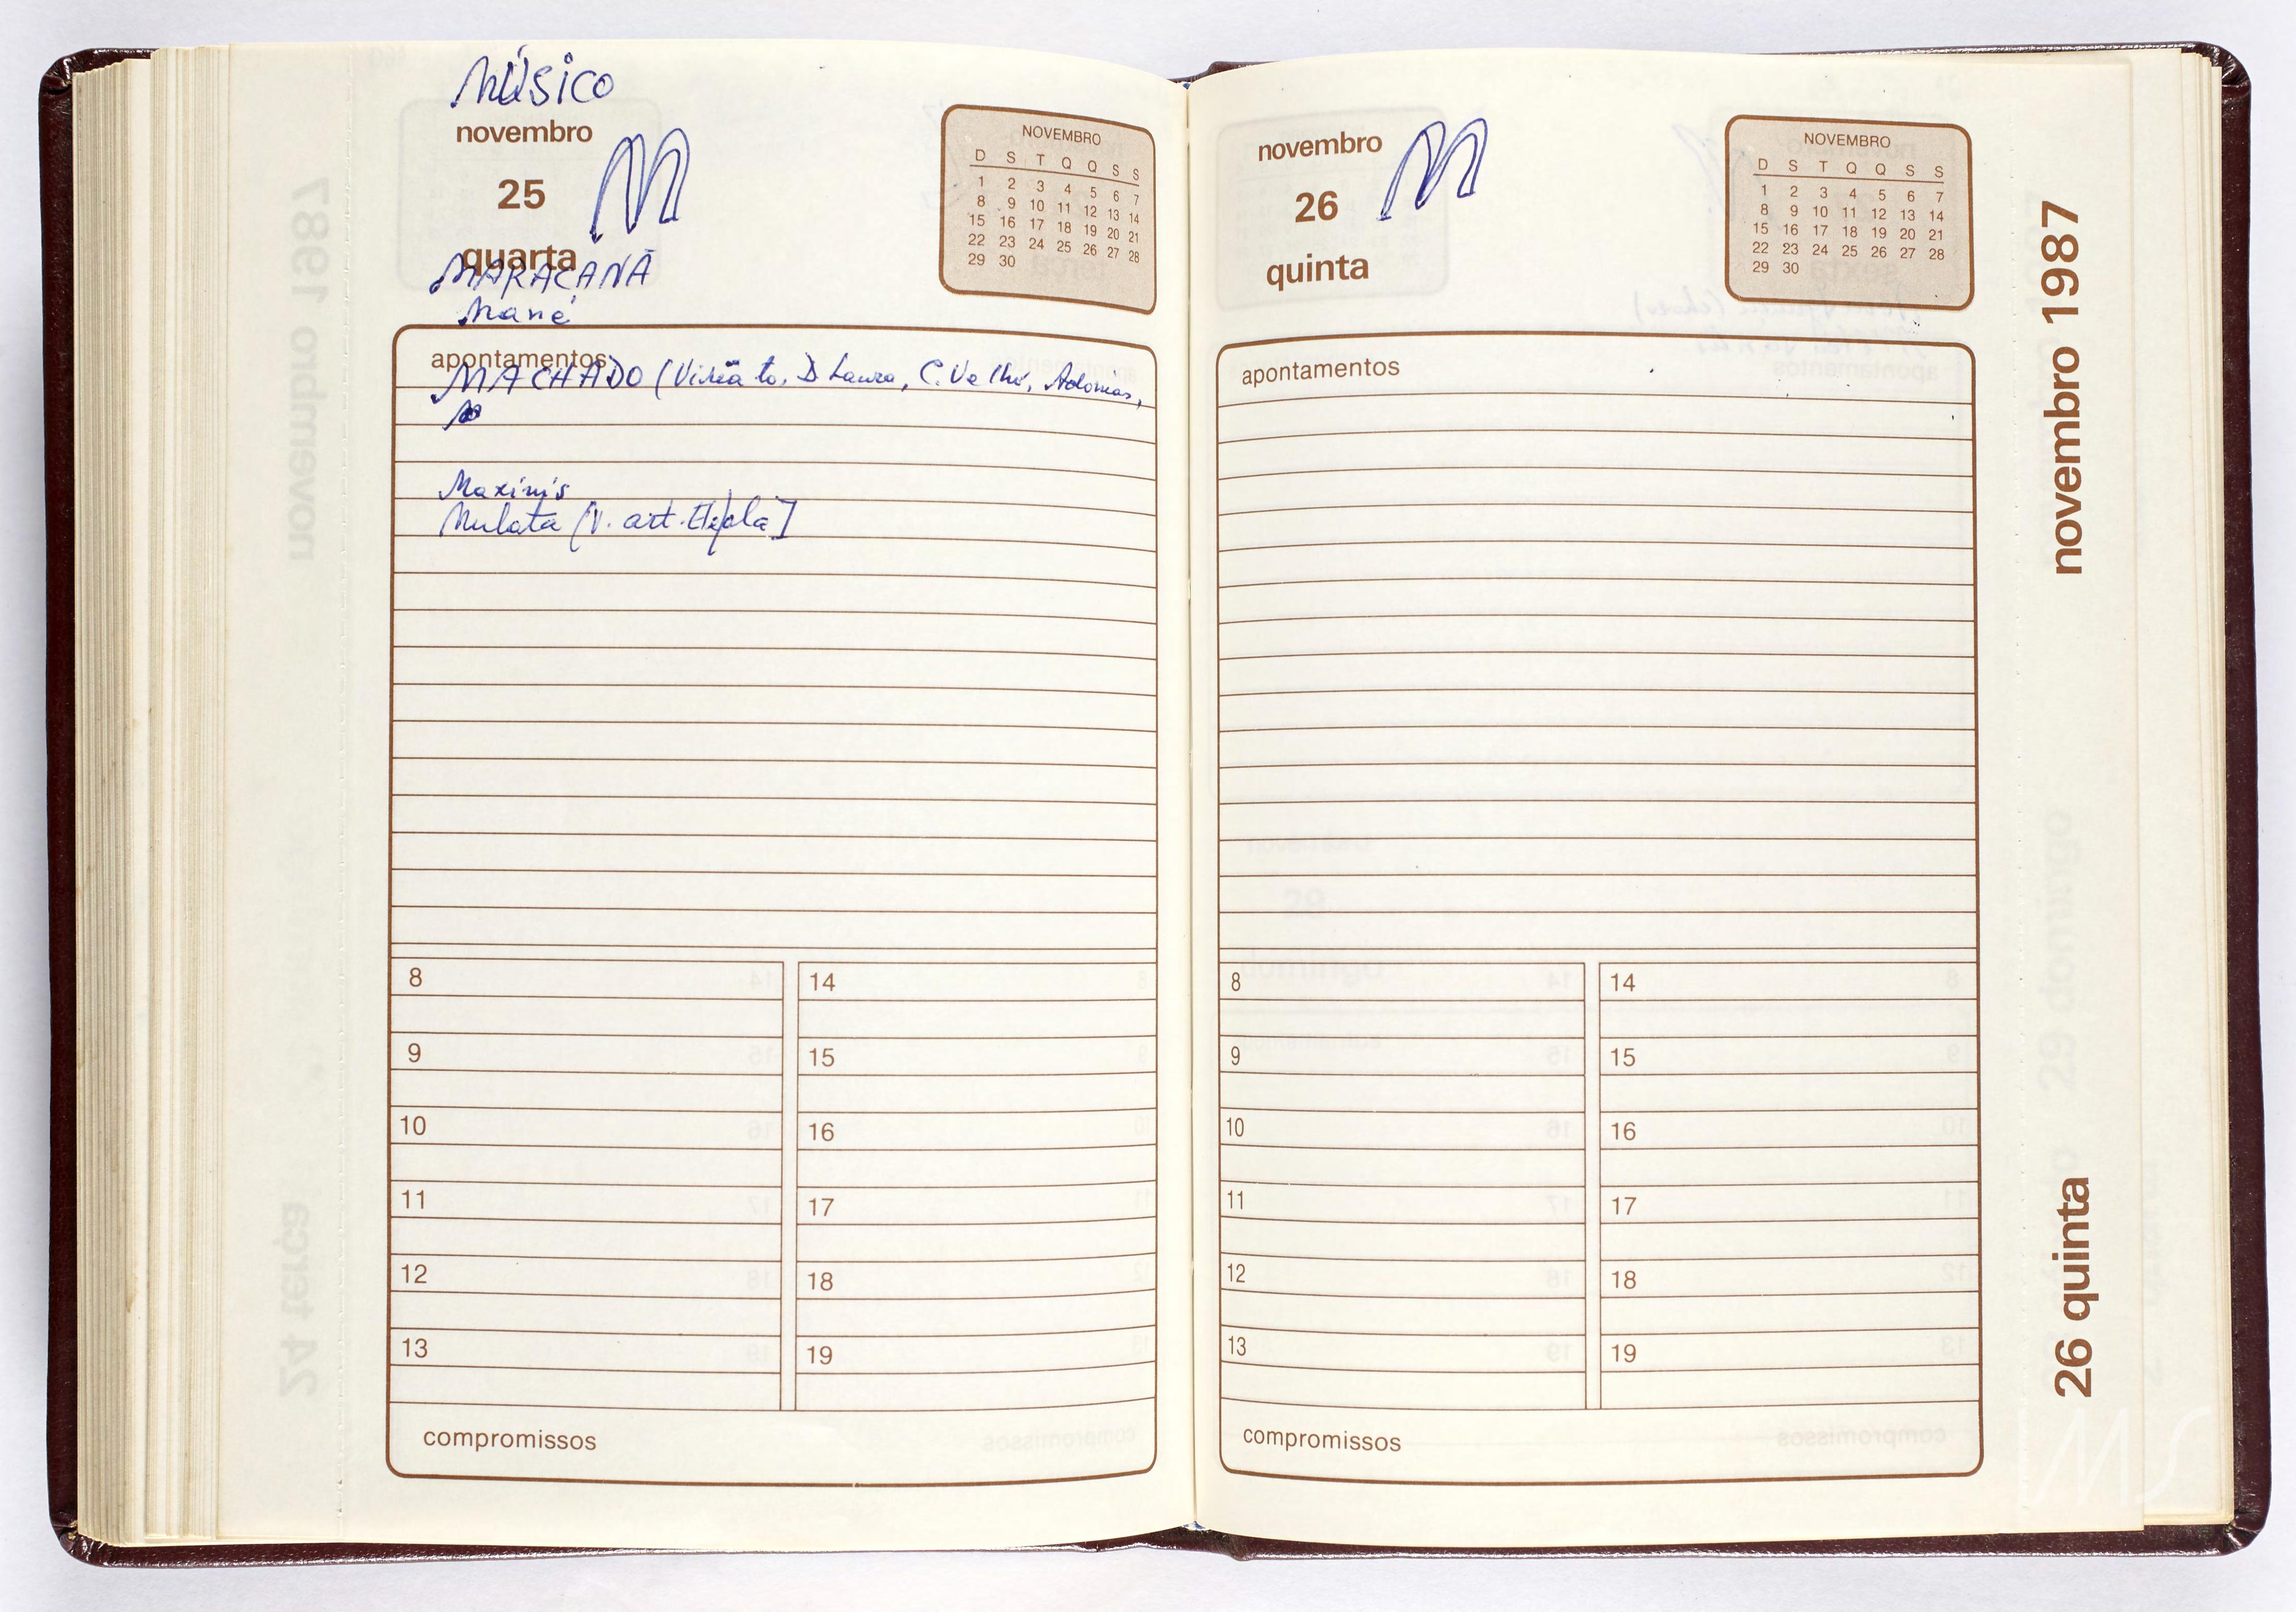 Músico
novembro
25
M
quarta
MARACANÃ
Mané
NOVEMBRO
D S T Q Q S S
1 2 3 4 5 6 7
8 9 10 11 12 13 14
15 16 17 18 19 20 21
22 23 24 25 26 27 28
29 30
apontamentos
MACHADO (Viriato, D. Laura, C. Velho, Adonias,
Maxim's
Mulata (V. art.
8 14
9 15
10 16
11 17
12 18
13 19
compromissos
novembro
26
M
quinta
NOVEMBRO
D S T Q Q S S
1 2 3 4 5 6 7
8 9 10 11 12 13 14
15 16 17 18 19 20 21
22 23 24 25 26 27 28
29 30
apontamentos
8 14
9 15
10 16
11 17
12 18
13 19
compromissos
novembro 1987
26 quinta
IMS